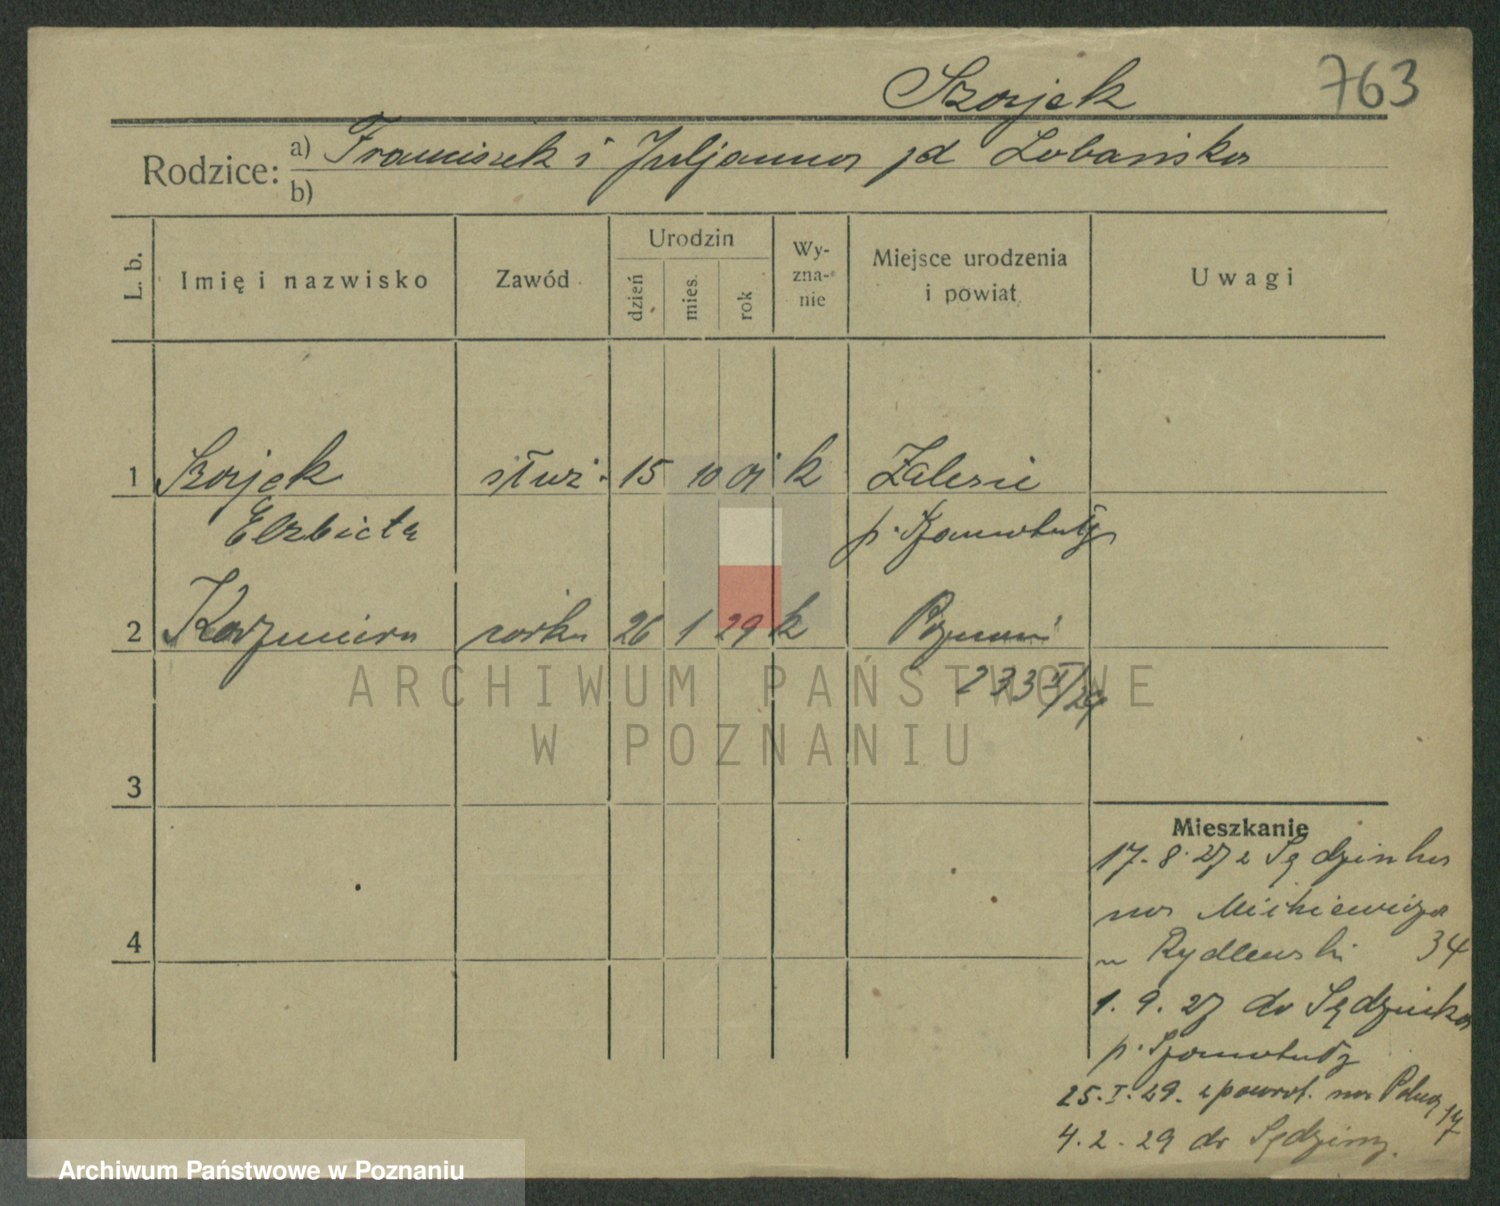 Szojek 763
Rodzice: a) Franciszek i Juljanna zd Lobańska
b)
L. b. Imię i nazwisko Zawód Urodzin dzień mies. rok Wy-zna-nie Miejsce urodzenia i powiat Uwagi
1 Szojek służ. 15 10 01 k Zalesie
Elzbieta p. Szamotuły
2 Kazimiera córka 26 1 29 k Poznań
233 II/29
ARCHIWUM PAŃSTWOWE
W POZNANIU
3
Mieszkanie
17.8.27 z Sędzinka
na Mickiewicza
u Rydlewski 34
4
1.9.27 do Sędzinka
p. Szamotuły
25.I.29. z powrot. na Polną 17
4.2.29 do Sędziny.
Archiwum Państwowe w Poznaniu